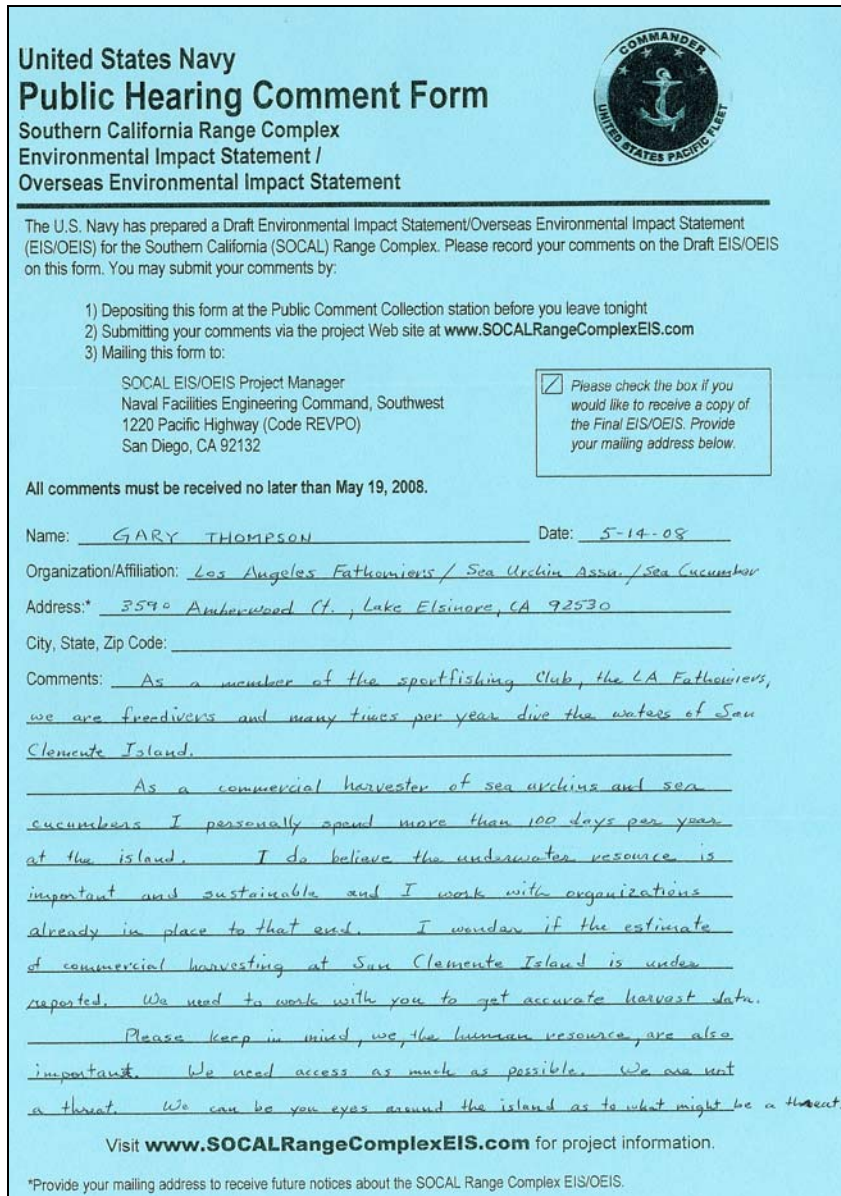 United States Navy
Public Hearing Comment Form
Southern California Range Complex
Environmental Impact Statement /
Overseas Environmental Impact Statement
COMMANDER
UNITED STATES PACIFIC FLEET
The U.S. Navy has prepared a Draft Environmental Impact Statement/Overseas Environmental Impact Statement
(EIS/OEIS) for the Southern California (SOCAL) Range Complex. Please record your comments on the Draft EIS/OEIS
on this form. You may submit your comments by:
1) Depositing this form at the Public Comment Collection station before you leave tonight
2) Submitting your comments via the project Web site at www.SOCALRangeComplexEIS.com
3) Mailing this form to:
SOCAL EIS/OEIS Project Manager
Naval Facilities Engineering Command, Southwest
1220 Pacific Highway (Code REVPO)
San Diego, CA 92132
Please check the box if you
would like to receive a copy of
the Final EIS/OEIS. Provide
your mailing address below.
All comments must be received no later than May 19, 2008.
Name: GARY THOMPSON Date: 5-14-08
Organization/Affiliation: Los Angeles Fathomiers / Sea Urchin Assn. / Sea Cucumber
Address:* 3590 Amberwood Ct., Lake Elsinore, CA 92530
City, State, Zip Code:
Comments: As a member of the sportfishing Club, the LA Fathomiers,
we are freedivers and many times per year dive the waters of San
Clemente Island.
As a commercial harvester of sea urchins and sea
cucumbers I personally spend more than 100 days per year
at the island. I do believe the underwater resource is
important and sustainable and I work with organizations
already in place to that end. I wonder if the estimate
of commercial harvesting at San Clemente Island is under
reported. We need to work with you to get accurate harvest data.
Please keep in mind, we, the human resource, are also
important. We need access as much as possible. We are not
a threat. We can be you eyes around the island as to what might be a threat.
Visit www.SOCALRangeComplexEIS.com for project information.
*Provide your mailing address to receive future notices about the SOCAL Range Complex EIS/OEIS.